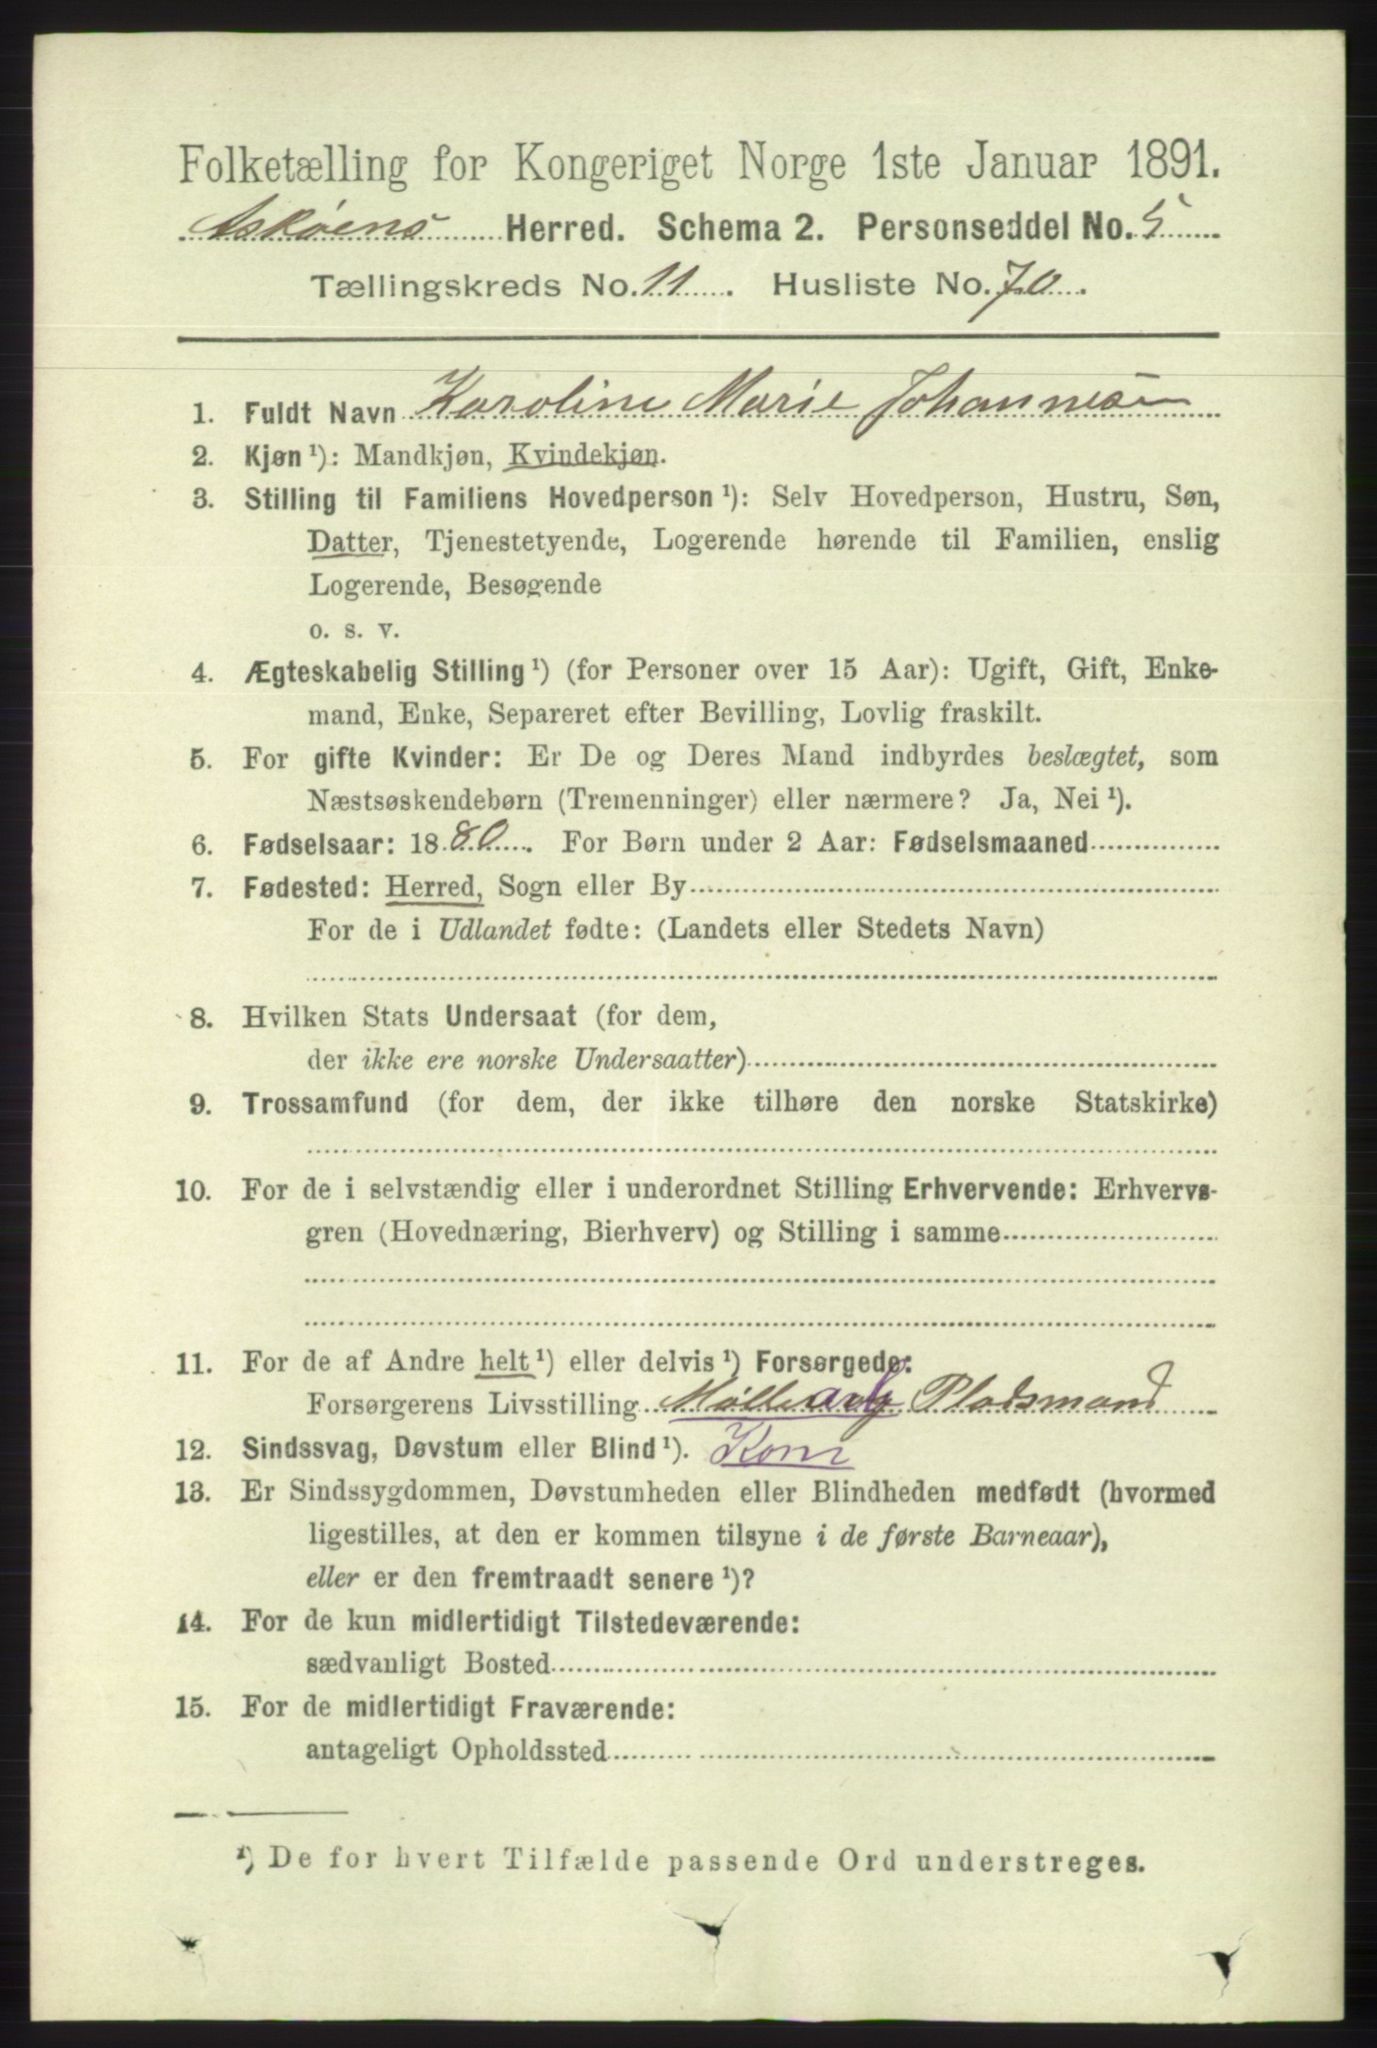 Folketælling for Kongeriget Norge 1ste Januar 1891.
Askøens Herred. Schema 2. Personseddel No. 5
Tællingskreds No. 11. Husliste No. 70.
1. Fuldt Navn Karoline Marie Johannesen
2. Kjøn ¹): Mandkjøn, Kvindekjøn.
3. Stilling til Familiens Hovedperson ¹): Selv Hovedperson, Hustru, Søn,
Datter, Tjenestetyende, Logerende hørende til Familien, enslig
Logerende, Besøgende
o. s. v.
4. Ægteskabelig Stilling ¹) (for Personer over 15 Aar): Ugift, Gift, Enke-
mand, Enke, Separeret efter Bevilling, Lovlig fraskilt.
5. For gifte Kvinder: Er De og Deres Mand indbyrdes beslægtet, som
Næstsøskendebørn (Tremenninger) eller nærmere? Ja, Nei ¹).
6. Fødselsaar: 1880. For Børn under 2 Aar: Fødselsmaaned
7. Fødested: Herred, Sogn eller By
For de i Udlandet fødte: (Landets eller Stedets Navn)
8. Hvilken Stats Undersaat (for dem,
der ikke ere norske Undersaatter)
9. Trossamfund (for dem, der ikke tilhøre den norske Statskirke)
10. For de i selvstændig eller i underordnet Stilling Erhvervende: Erhvervs-
gren (Hovednæring, Bierhverv) og Stilling i samme
11. For de af Andre helt ¹) eller delvis ¹) Forsørgede:
Forsørgerens Livsstilling Møllearb Pladsmand
12. Sindssvag, Døvstum eller Blind ¹).
13. Er Sindssygdommen, Døvstumheden eller Blindheden medfødt (hvormed
ligestilles, at den er kommen tilsyne i de første Barneaar),
eller er den fremtraadt senere ¹)?
14. For de kun midlertidigt Tilstedeværende:
sædvanligt Bosted
15. For de midlertidigt Fraværende:
antageligt Opholdssted
¹) De for hvert Tilfælde passende Ord understreges.